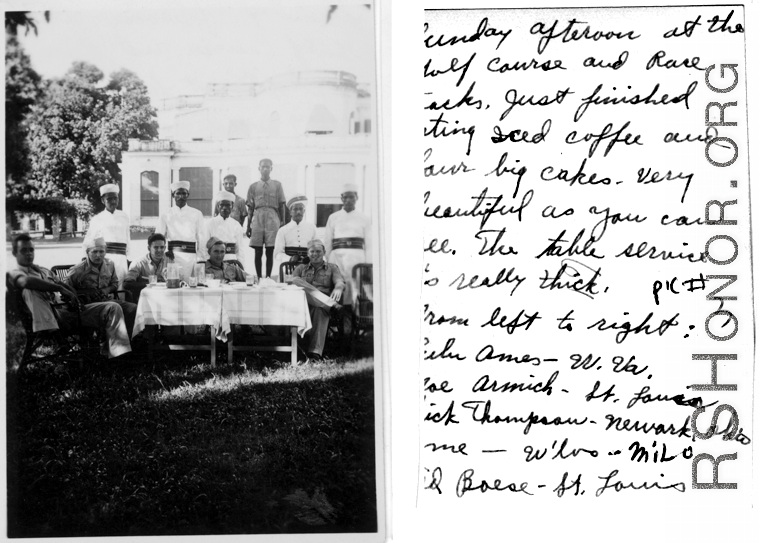 unday afteroon at the
olf course and Race
acks. Just finished
ting iced coffee and
our big cakes. Very
eautiful as you can
ee. The table service
s really thick. pic #
rom left to right:
Ames - W. Va.
oe Armich - St. Louis
ick Thompson - Newark, Ohio
me - W'lvo - MiLo
d Boese - St. Louis
RSHONOR.ORG